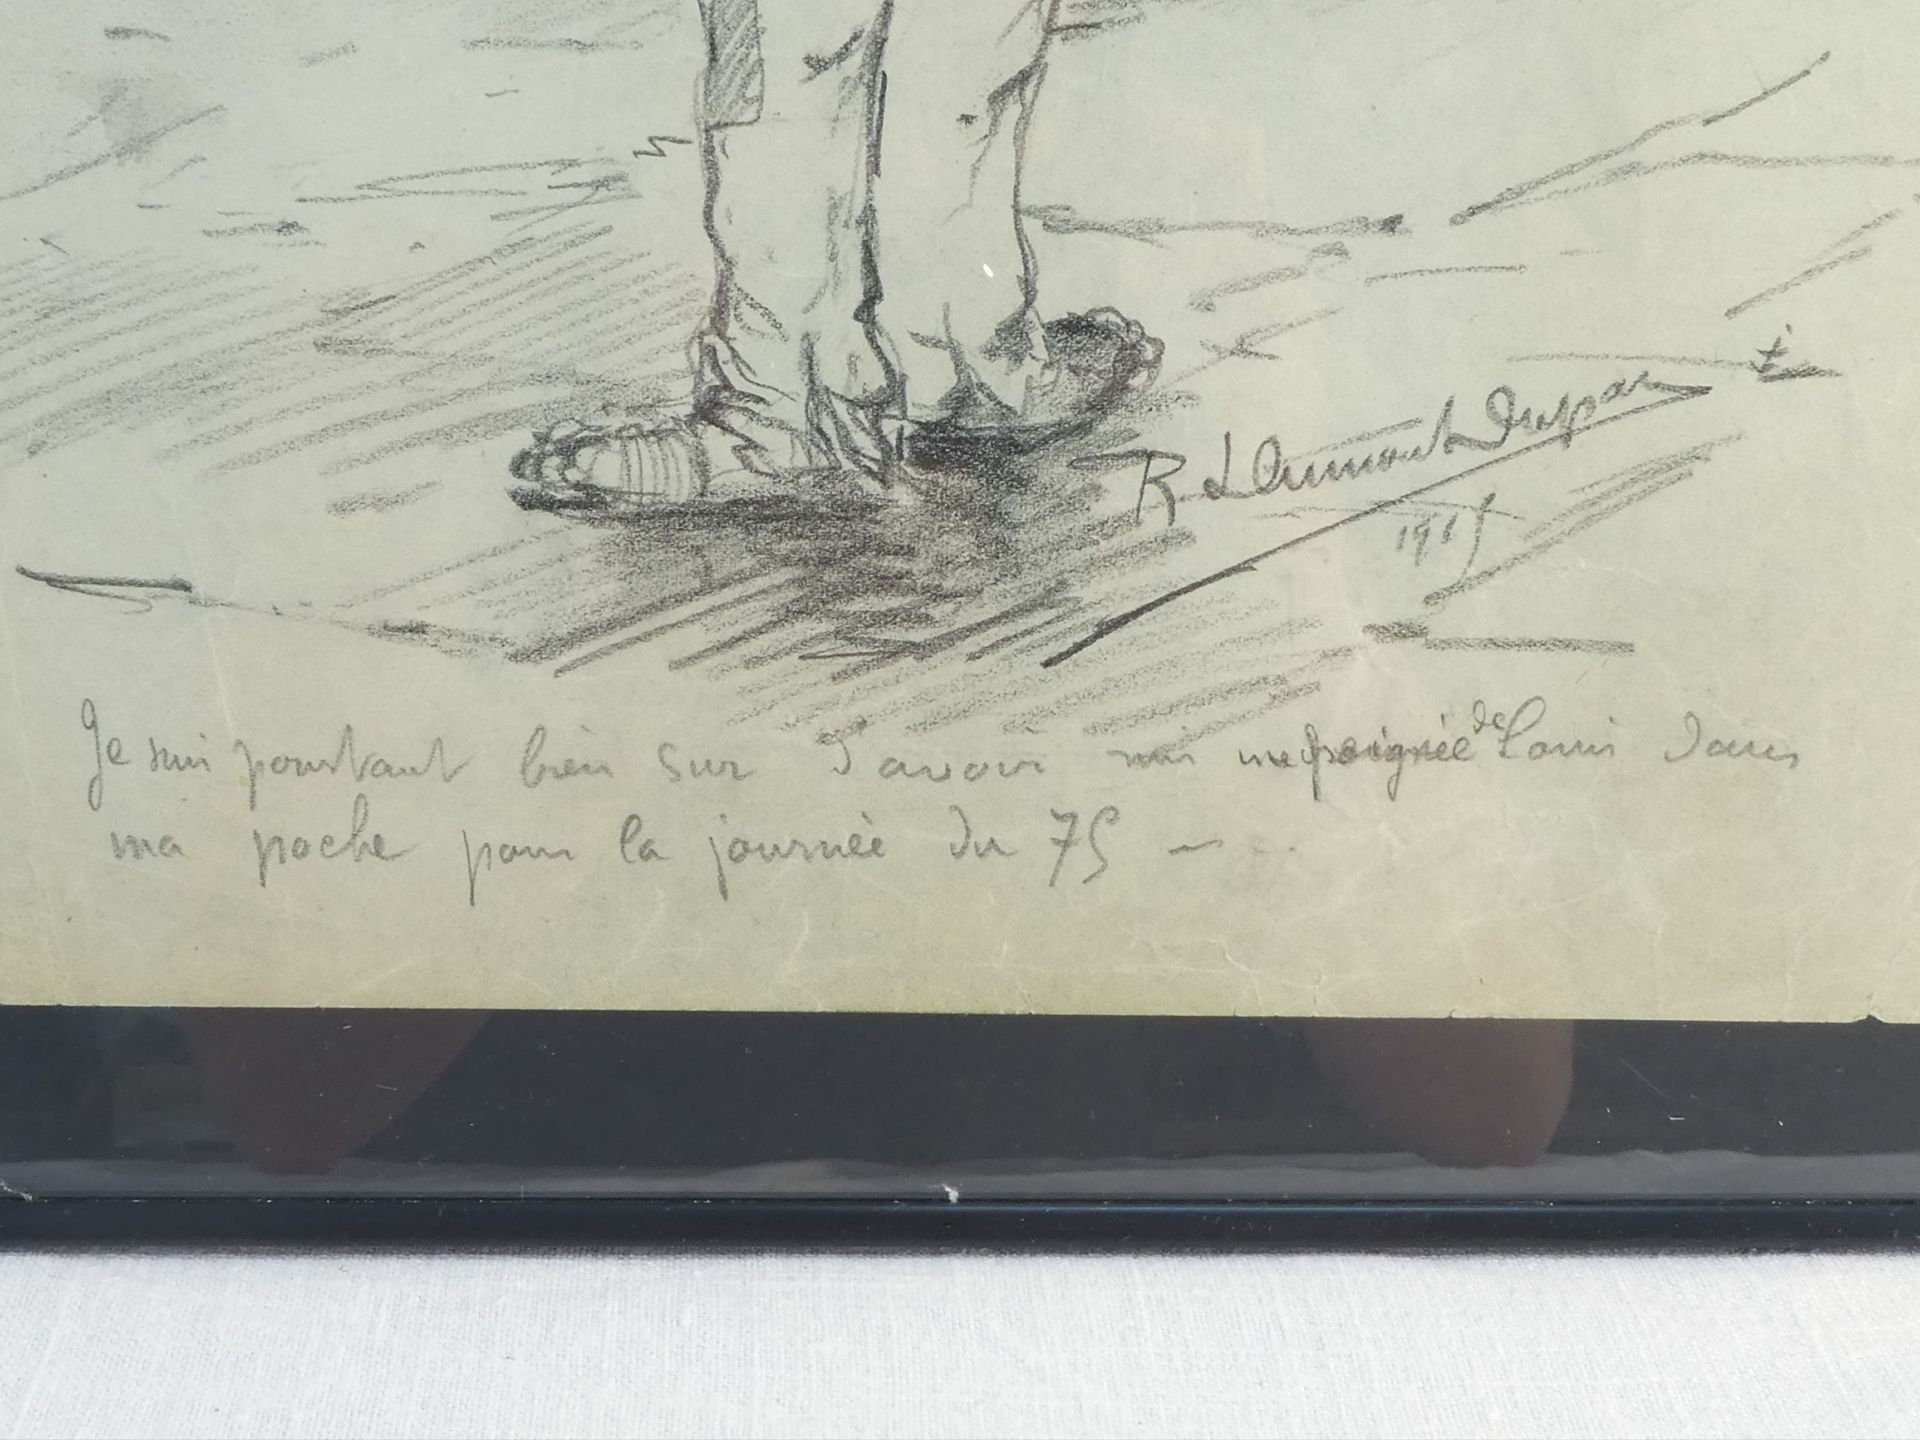 R Lamouk Dupar
1915
Je suis pourtant bien sur d'avoir mis une poignée de Louis dans
ma poche pour la journée du 75 — ..